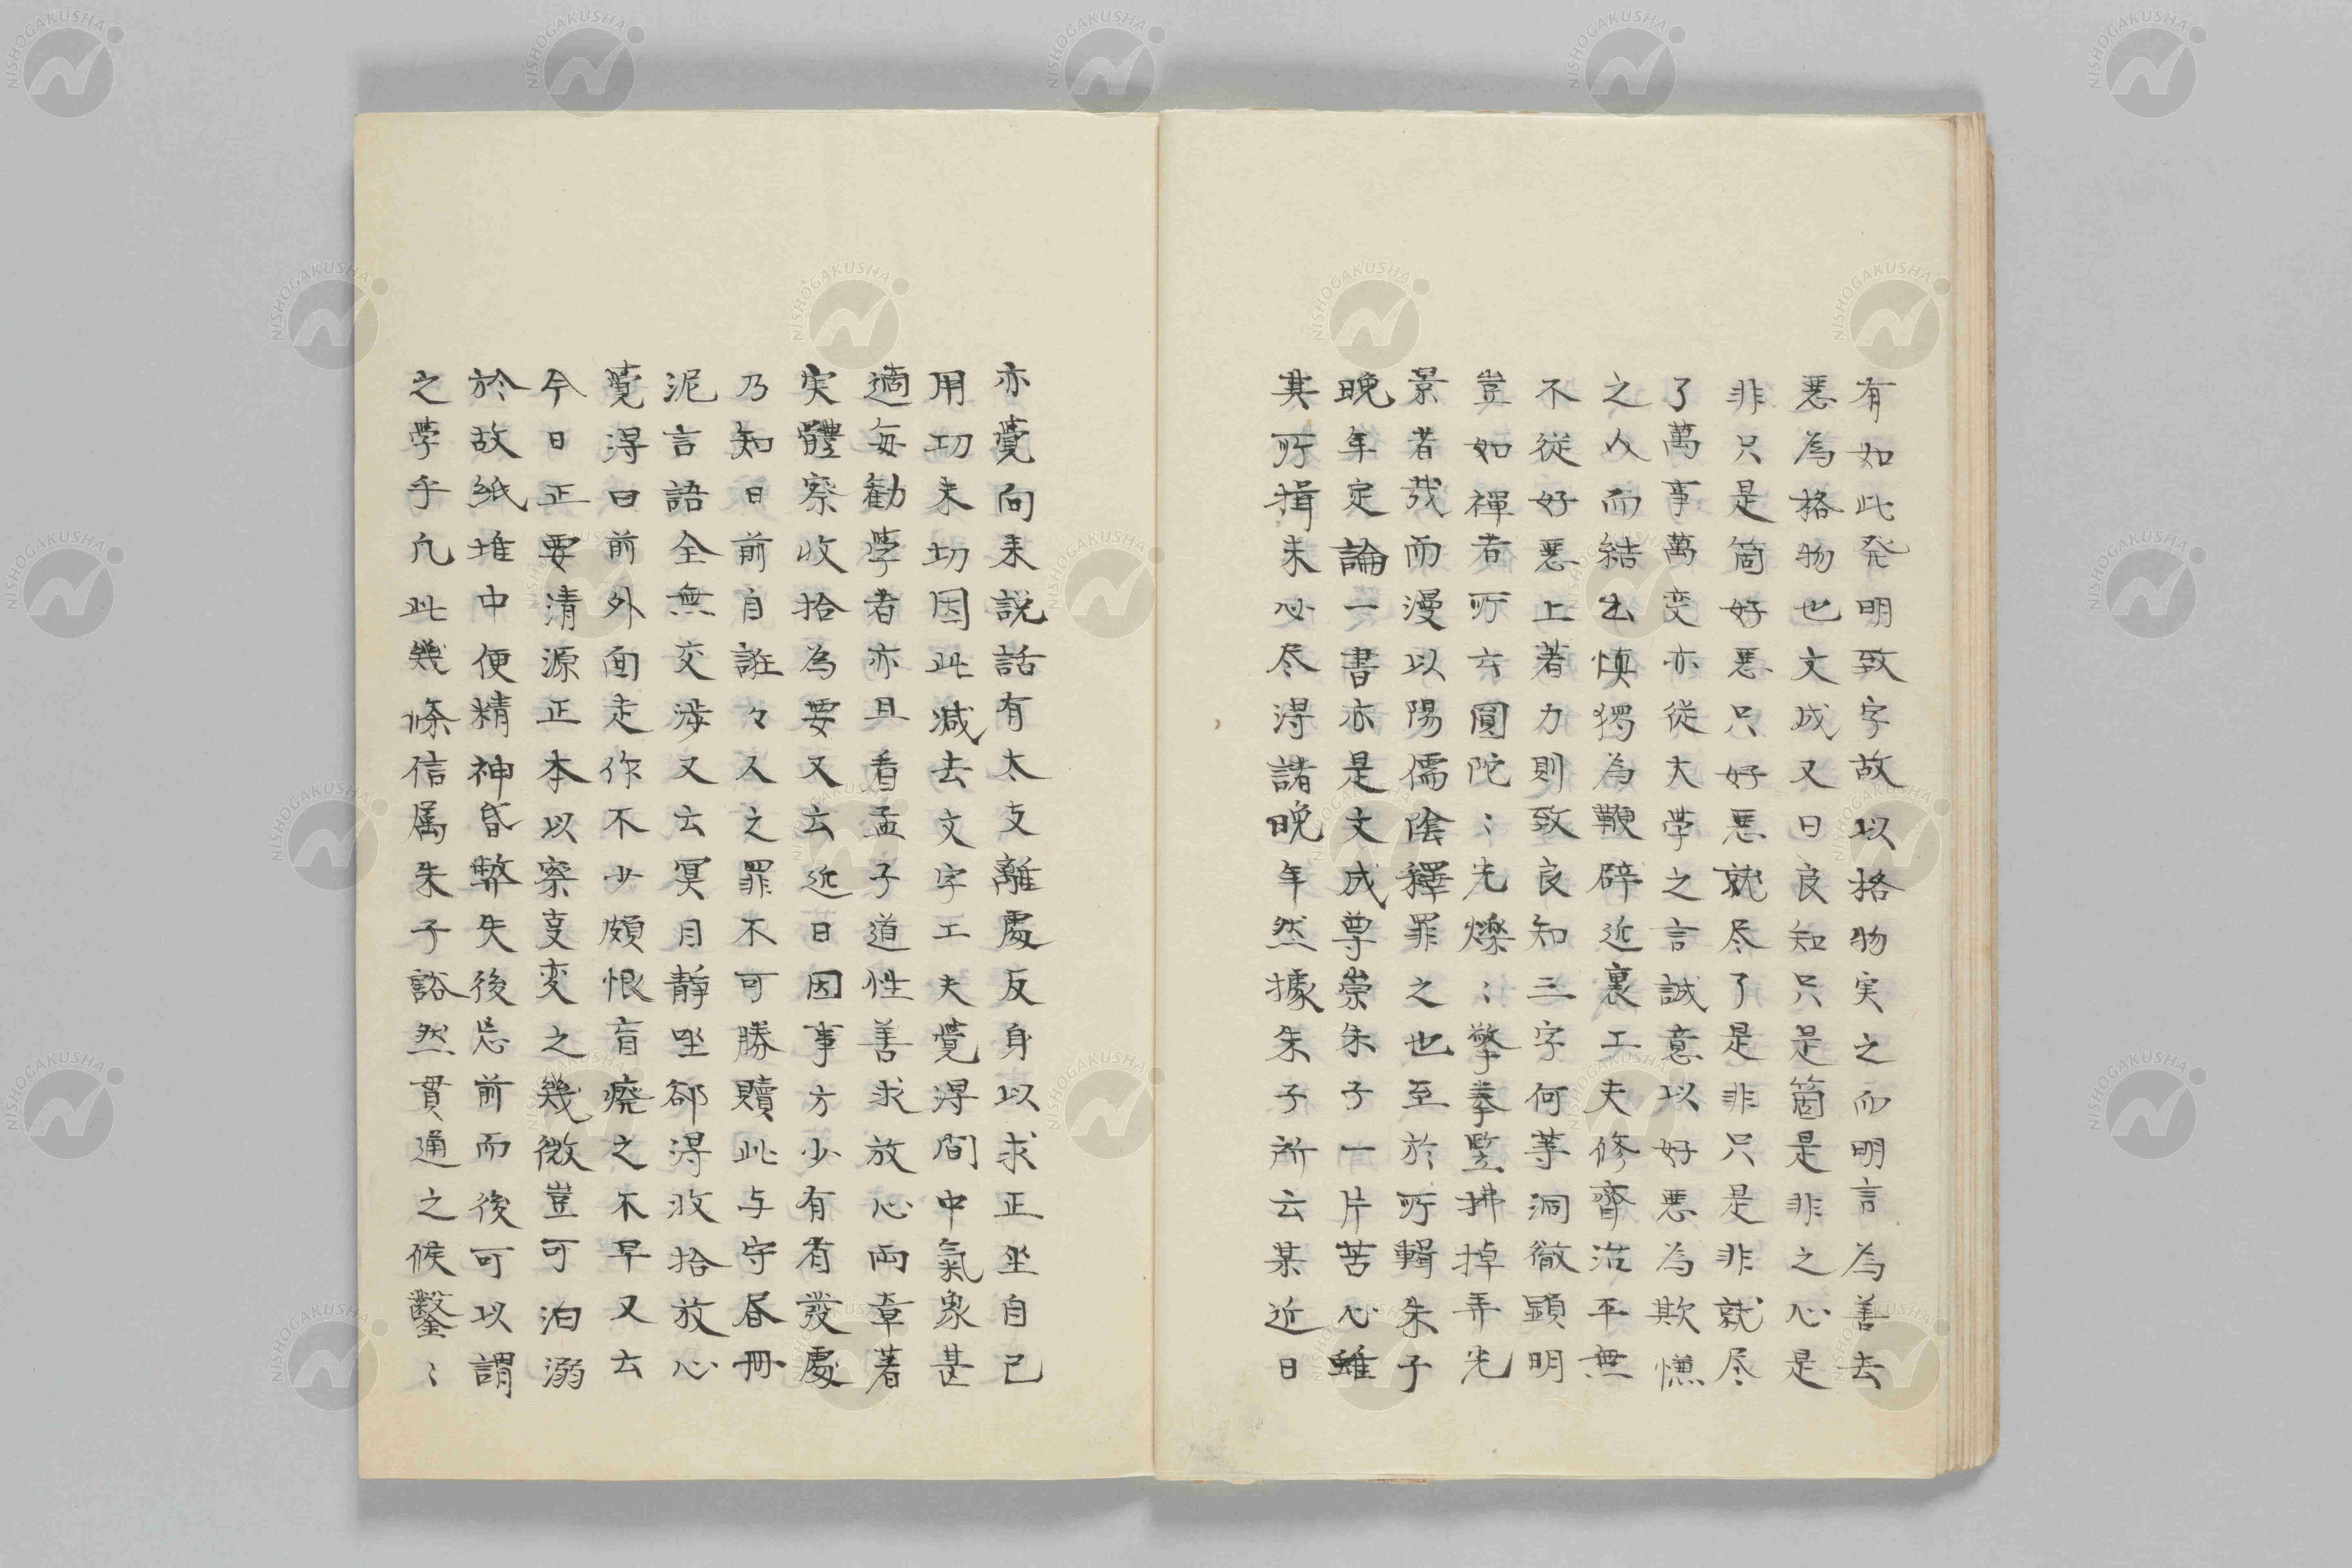 有如此発明致字故以格物実之而明言為善去
悪為格物也文成又曰良知只是箇是非之心是
非只是箇好悪只好悪就尽了是非只是非就尽
了萬事萬变亦従大学之言誠意以好悪為欺慊
之人而結出慎独為鞭辟近裏工夫修齊治平無
不従好悪上著力則致良知三字何等洞徹顕明
豈如禅者所云圓陀〻光爍〻擎拳竪拂掉弄光
景者哉而漫以陽儒陰釋罪之也至於所輯朱子
晩年定論一書亦是文成尊崇朱子一片苦心雖
其所揖未必尽得諸晩年然據朱子所云某近日
亦覚向来説話有太支離處反身以求正坐自己
用功未切因此減去文字工夫覚得間中氣象甚
適毎勧学者亦且看孟子道性善求放心両章著
実體察收拾為要又云近日因事方少有省發處
乃知日前自誑々人之罪不可勝贖此与守昼冊
泥言語全無交渉又云冥目静坐郤得收拾放心
覚得日前外面走作不少頗恨盲廃之不早又云
今日正要清源正本以察事変之幾微豈可汩溺
於故紙堆中使精神昏弊失後忘前而後可以謂
之学乎凢此幾條信属朱子豁然貫通之候鑿〻
NISHOGAKUSHA